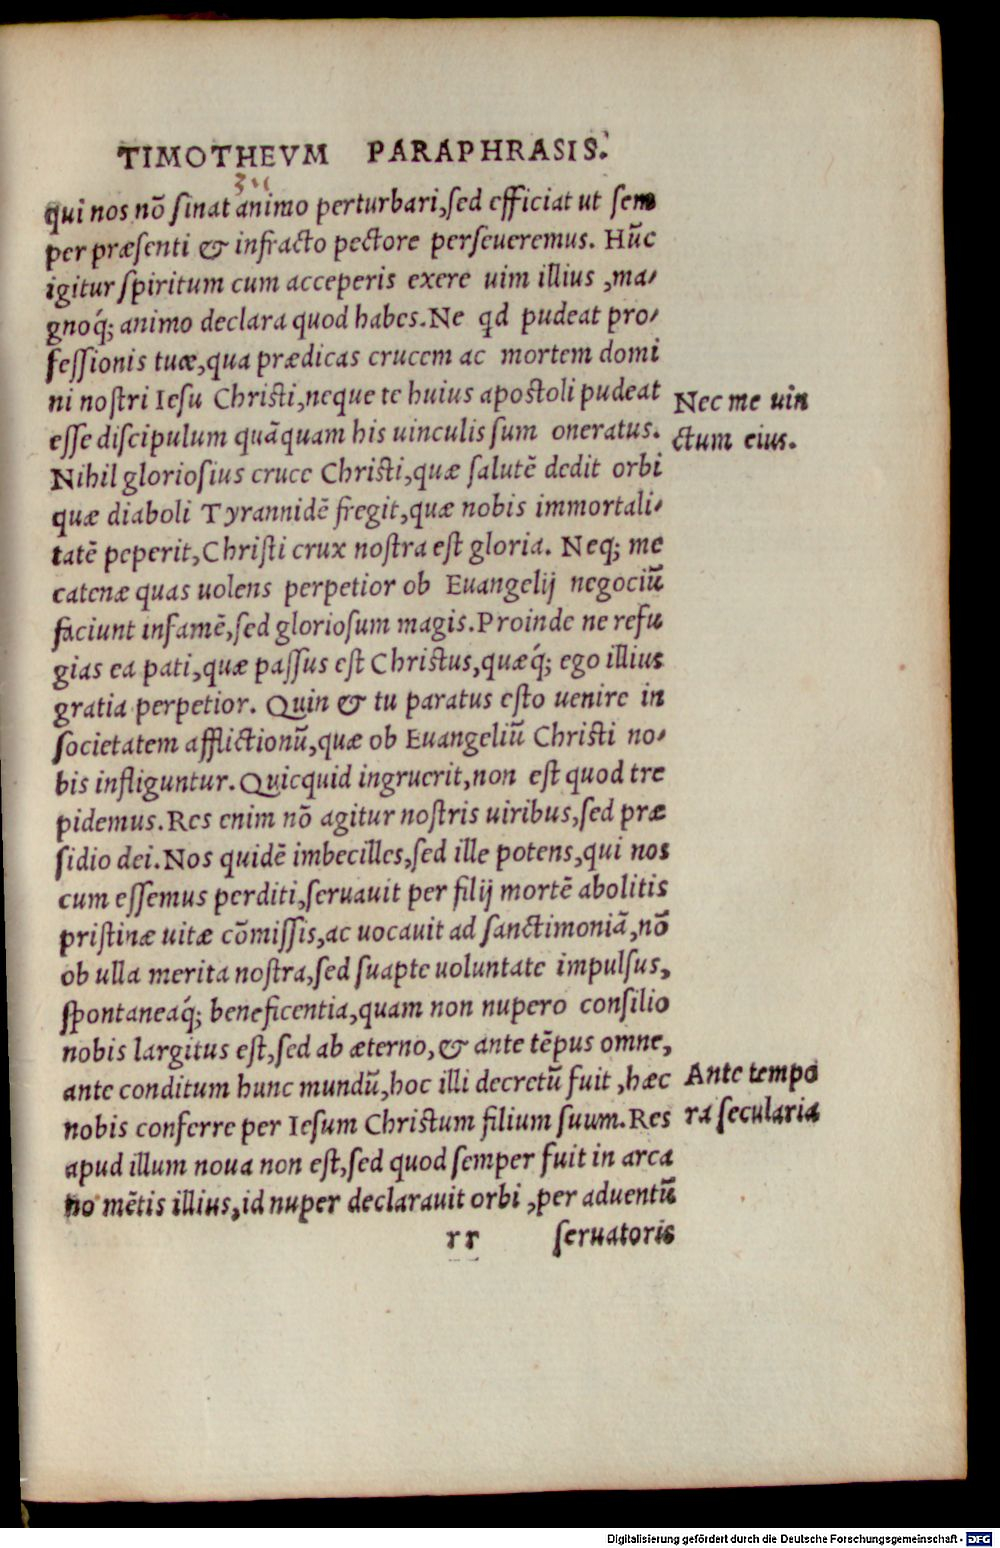 TIMOTHEVM PARAPHRASIS.
qui nos nõ ſinat animo perturbari,ſed efficiat ut ſem
per præſenti & infracto pectore perſeueremus. Hũc
igitur ſpiritum cum acceperis exere uim illius ,ma⸗
gnoq́; animo declara quod habes.Ne qd pudeat pro⸗
feſſionis tuæ,qua prædicas crucem ac mortem domi
ni noſtri Ieſu Chriſti,neque te huius apoſtoli pudeat
Nec me uin
eſſe diſcipulum quãquam his uinculis ſum oneratus.
ctum eius.
Nihil glorioſius cruce Chriſti,quæ ſalutẽ dedit orbi
quæ diaboli Tyrannidẽ fregit,quæ nobis immortali⸗
tatẽ peperit,Chriſti crux noſtra eſt gloria. Neq; me
catenæ quas uolens perpetior ob Euangelij negociũ
faciunt infamẽ,ſed glorioſum magis.Proinde ne refu
gias ea pati,quæ paſſus eſt Chriſtus,quæq́; ego illius
gratia perpetior. Quin & tu paratus eſto uenire in
ſocietatem afflictionũ,quæ ob Euangeliũ Chriſti no⸗
bis infliguntur.Quicquid ingruerit,non eſt quod tre
pidemus.Res enim nõ agitur noſtris uiribus,ſed præ
ſidio dei.Nos quidẽ imbecilles,ſed ille potens,qui nos
cum eſſemus perditi,ſeruauit per filij mortẽ abolitis
priſtinæ uitæ cõmiſſis,ac uocauit ad ſanctimoniã,nõ
ob ulla merita noſtra,ſed ſuapte uoluntate impulſus,
ſpontaneaq́; beneficentia,quam non nupero conſilio
nobis largitus eſt,ſed ab æterno,& ante tẽpus omne,
ante conditum hunc mundũ,hoc illi decretũ fuit ,hæc
Ante tempo
nobis conferre per Ieſum Chriſtum filium ſuum.Res
ra ſecularia
apud illum noua non eſt,ſed quod ſemper fuit in arca
no mẽtis illius,id nuper declarauit orbi ,per aduentũ
rr ſeruatoris
Digitalisierung gefördert durch die Deutsche Forschungsgemeinschaft - DFG